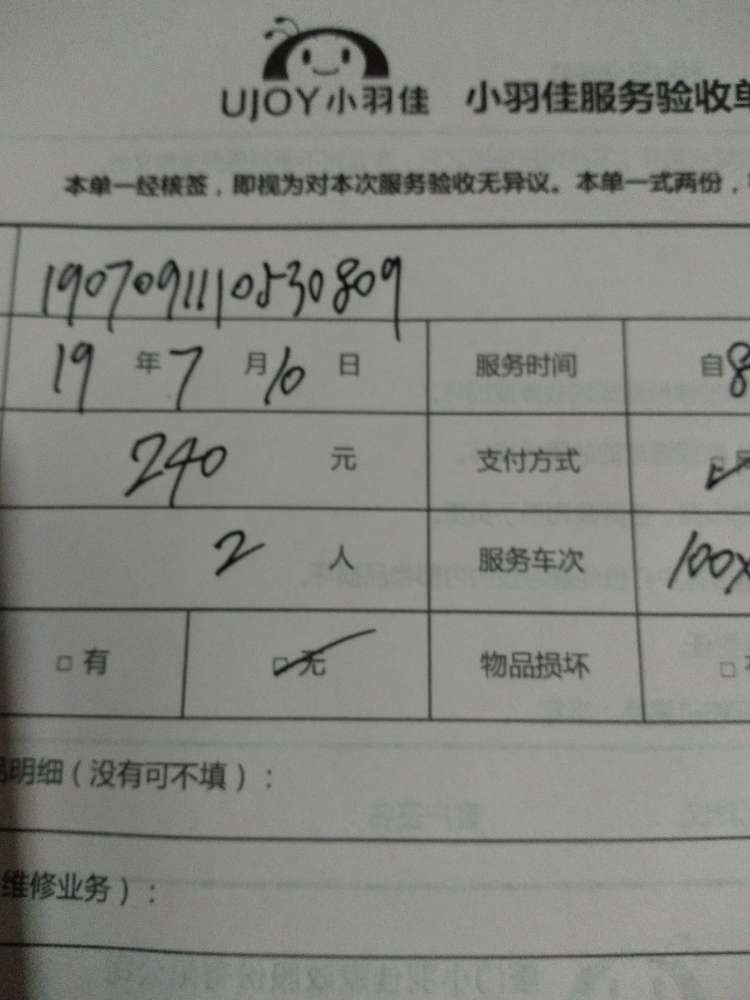 UJOY小羽佳 小羽佳服务验收单
本单一经核签，即视为对本次服务验收无异议。本单一式两份，
1907091110530809
19 年 7 月 10 日 服务时间 自 8
240 元 支付方式
2 人 服务车次 100x
□ 有 □ 无 物品损坏 □
明细（没有可不填）：
维修业务）：